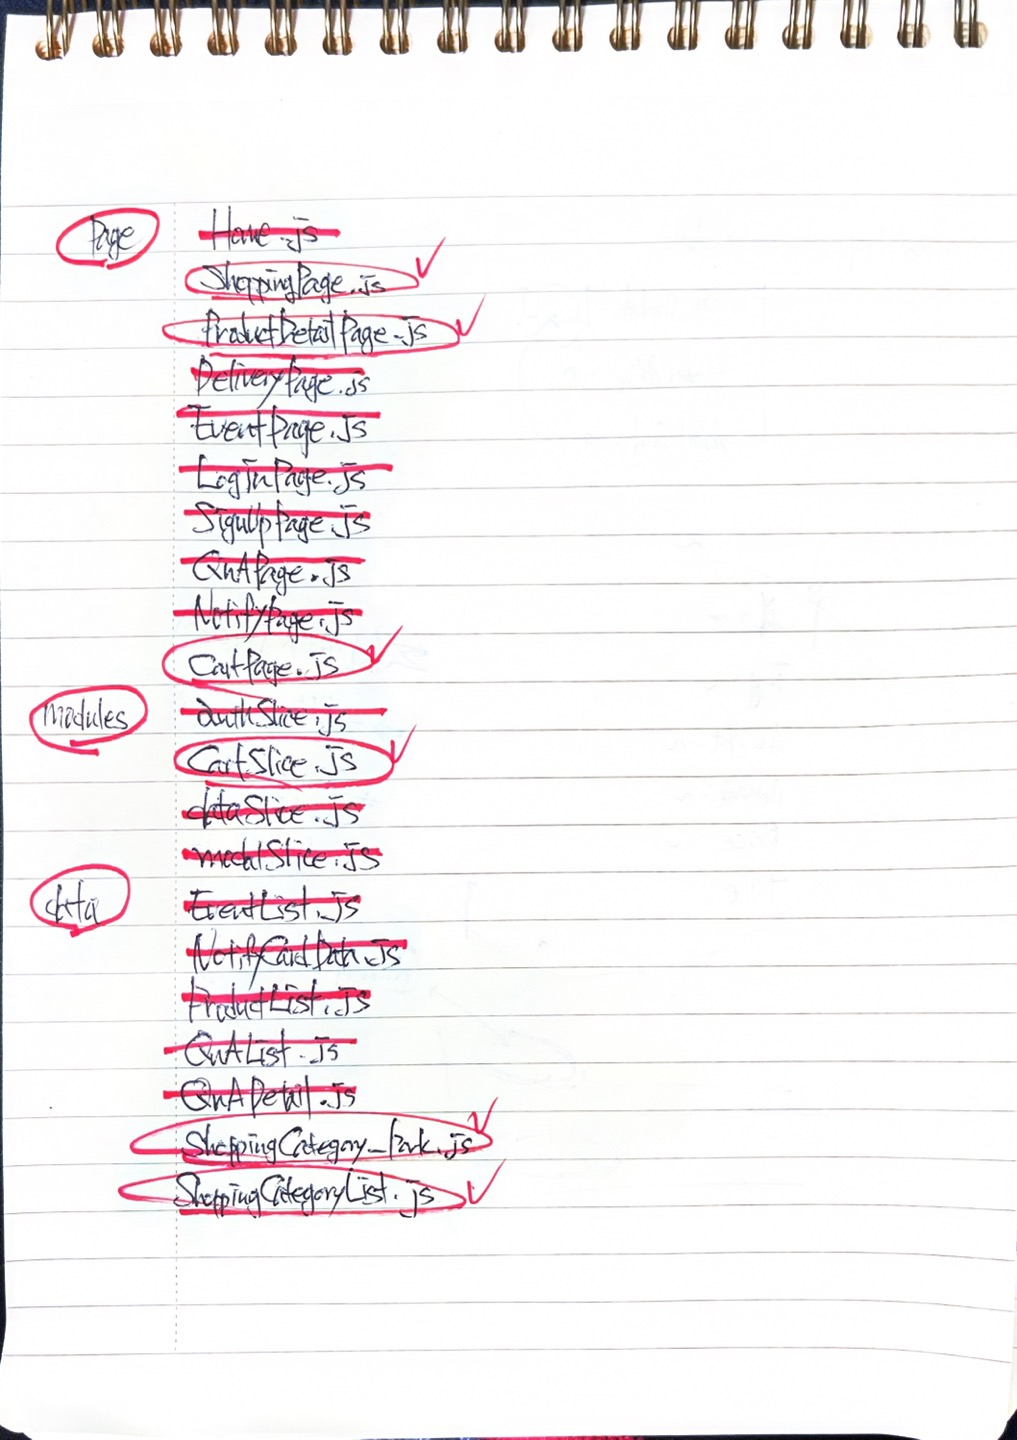 Page Home.js
ShoppingPage.js
ProductDetailPage.js
DeliveryPage.js
EventPage.js
LoginPage.js
SignUpPage.js
QnAPage.js
NotifyPage.js
CartPage.js
modules authSlice.js
CartSlice.js
dataSlice.js
modalSlice.js
data EventList.js
NotifyCardData.js
ProductList.js
QnAList.js
QnADetail.js
ShoppingCategory_Park.js
ShoppingCategoryList.js